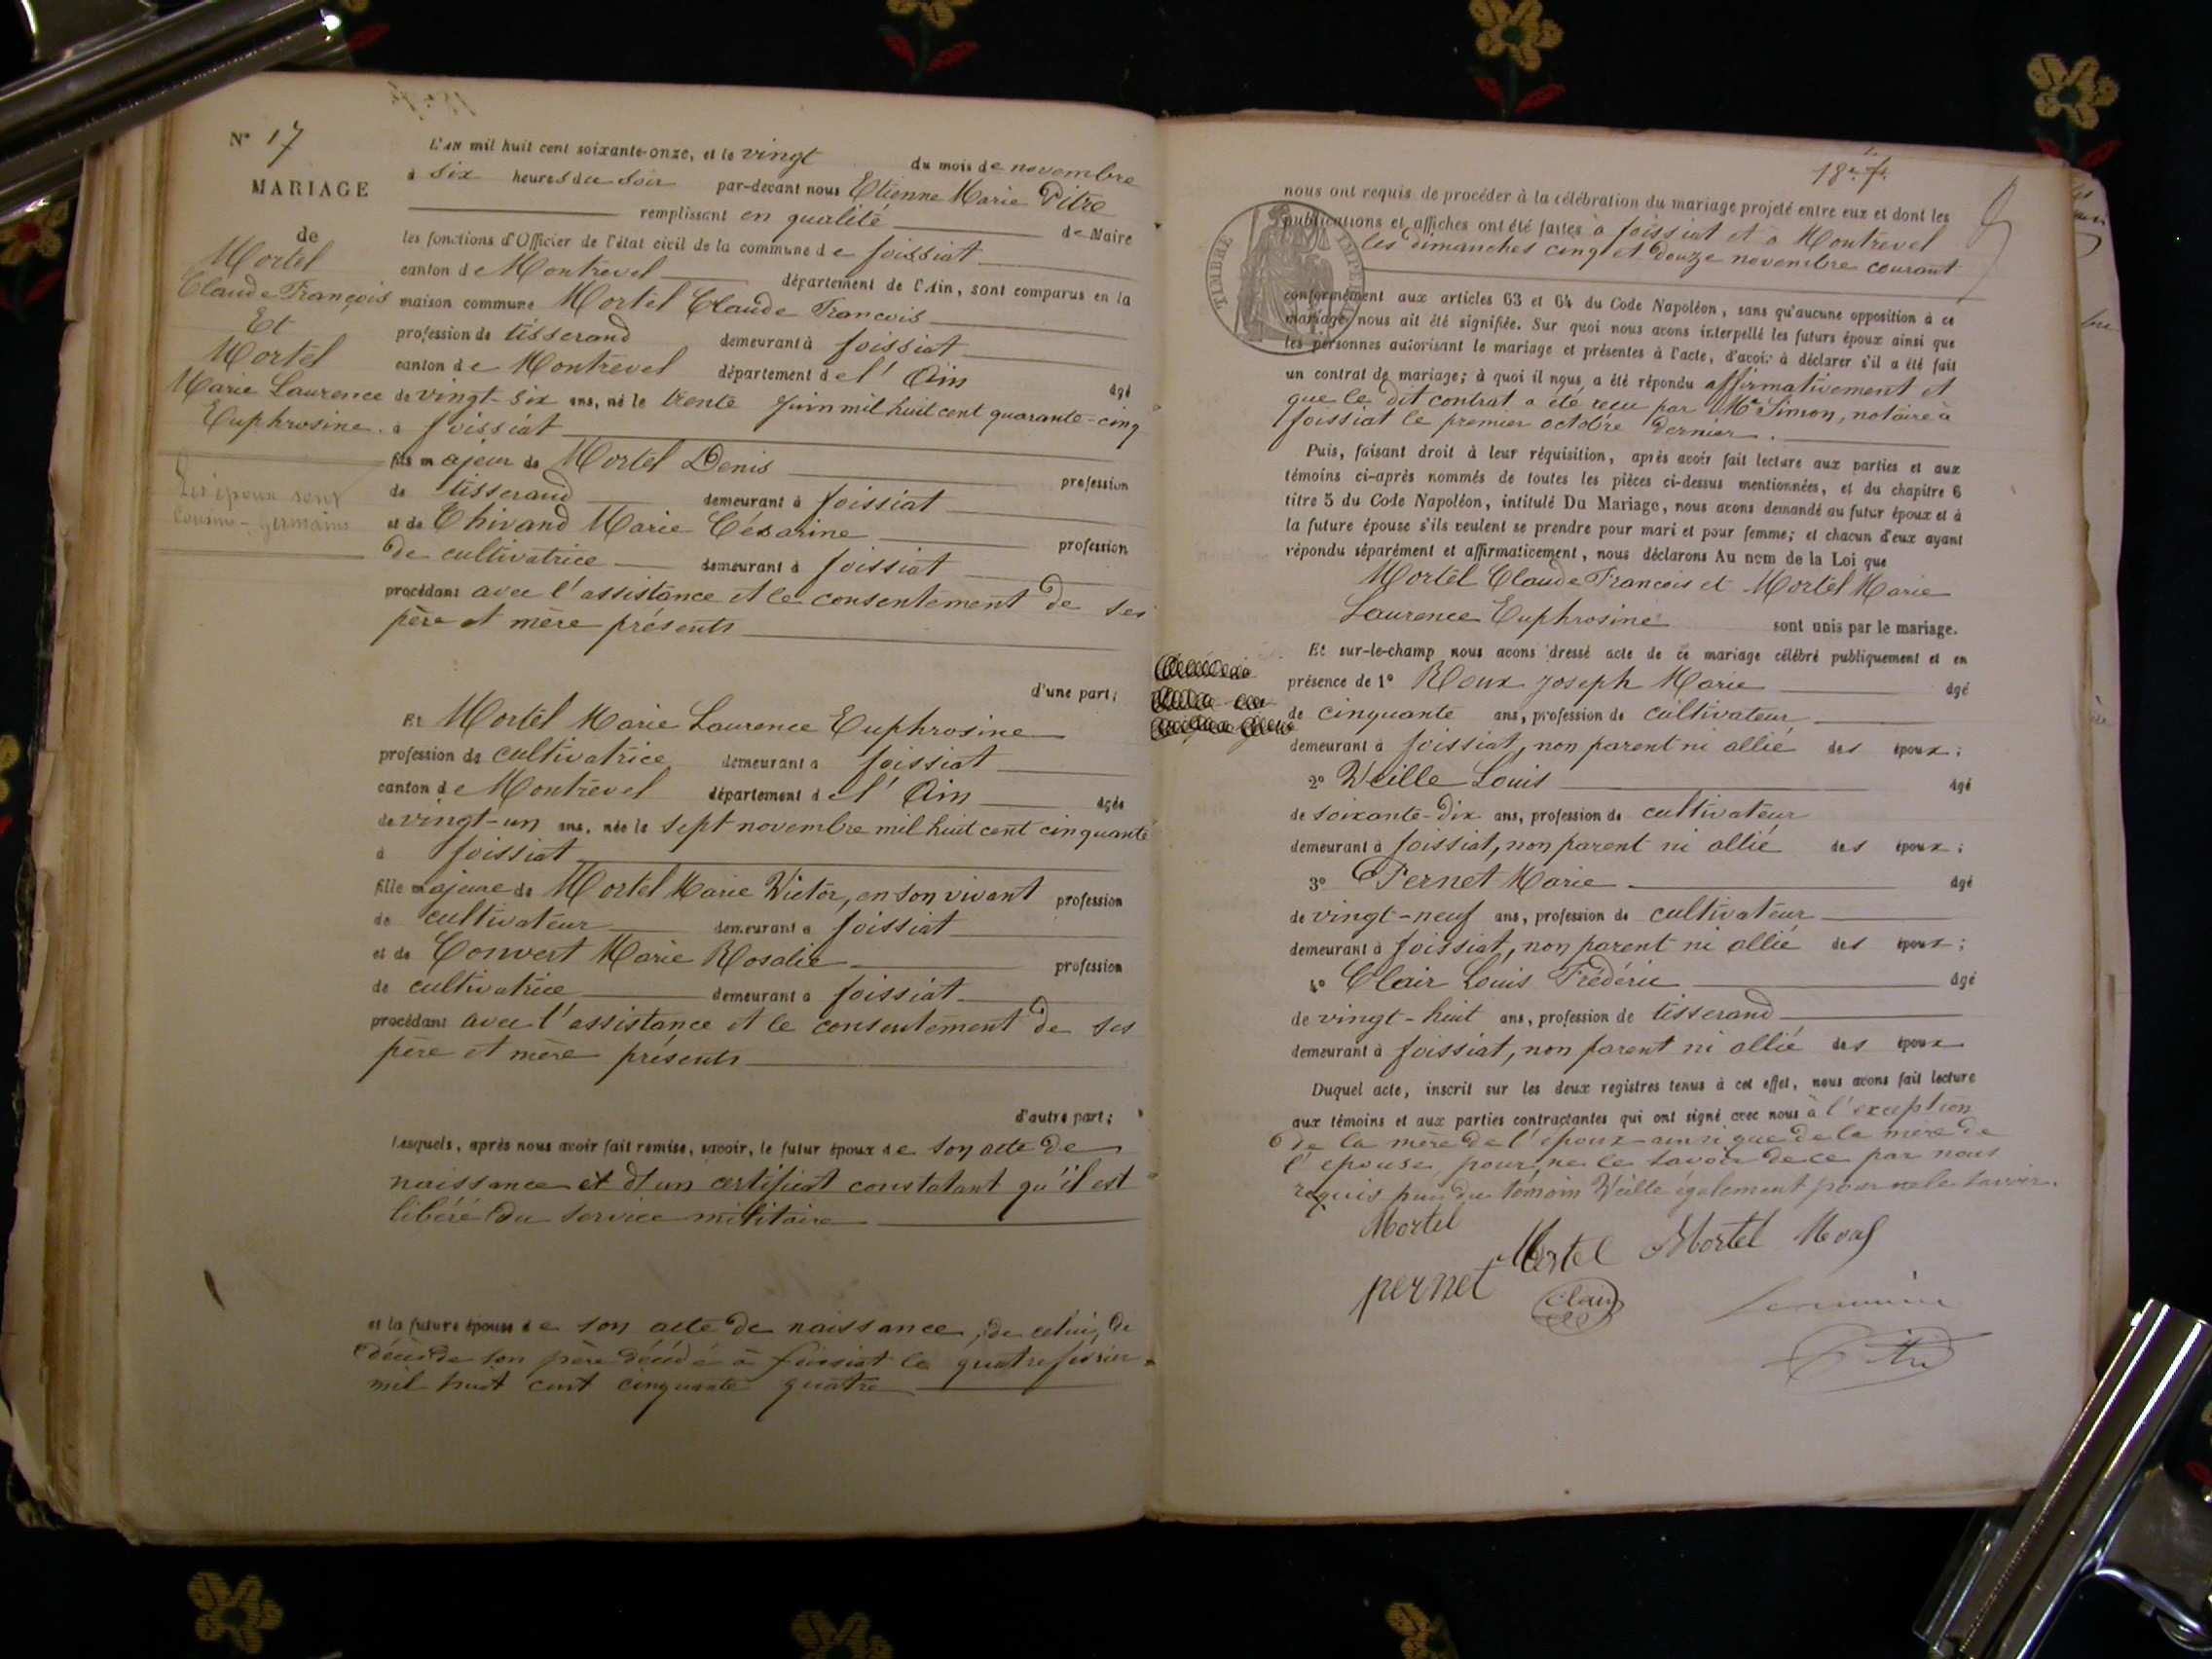 N° 17
MARIAGE
de
Mortel
Claude François
Et
Mortel
Marie Laurence
Euphrosine.
Les époux sont
cousins-germains
L'an mil huit cent soixante-onze, et le vingt du mois de novembre
à six heures du soir par-devant nous Etienne Marie Pitre
remplissant en qualité de Maire
les fonctions d'Officier de l'état civil de la commune de foissiat
canton de Montrevel département de l'Ain, sont comparus en la
maison commune Mortel Claude Francois
profession de tisserand demeurant à foissiat
canton de Montrevel département de l'Ain âgé
de vingt-six ans, né le trente Juin mil huit cent quarante-cinq
à foissiat
fils majeur de Mortel Denis profession
de tisserand demeurant à foissiat
et de Chivand Marie Césarine profession
de cultivatrice demeurant à foissiat
procédant avec l'assistance et le consentement de ses
père et mère présents
d'une part;
Et Mortel Marie Laurence Euphrosine
profession de cultivatrice demeurant a foissiat
canton de Montrevel département de l'Ain âgée
de vingt-un ans, née le sept novembre mil huit cent cinquante
à foissiat
fille majeure de Mortel Marie Victor, en son vivant profession
de cultivateur demeurant a foissiat
et de Convert Marie Rosalie profession
de cultivatrice demeurant a foissiat
procédant avec l'assistance et le consentement de ses
père et mère présents
d'autre part;
Lesquels, après nous avoir fait remise, savoir, le futur époux de son acte de
naissance et d'un certificat constatant qu'il est
libéré du service militaire
et la future épouse de son acte de naissance, de celui de
décès de son père décédé à foissiat le quatre février
mil huit cent cinquante quatre
18e f.
nous ont requis de procéder à la célébration du mariage projeté entre eux et dont les
publications et affiches ont été faites à foissiat et à Montrevel
les dimanches cinq et douze novembre courant
TIMBRE IMPERIAL
conformément aux articles 63 et 64 du Code Napoléon, sans qu'aucune opposition à ce
mariage nous ait été signifiée. Sur quoi nous avons interpellé les futurs époux ainsi que
les personnes autorisant le mariage et présentes à l'acte, d'avoir à déclarer s'il a été fait
un contrat de mariage; à quoi il nous a été répondu affirmativement et
que le dit contrat a été reçu par Me Simon, notaire à
foissiat le premier octobre dernier.
Puis, faisant droit à leur réquisition, après avoir fait lecture aux parties et aux
témoins ci-après nommés de toutes les pièces ci-dessus mentionnées, et du chapitre 6
titre 5 du Code Napoléon, intitulé Du Mariage, nous avons demandé au futur époux et à
la future épouse s'ils veulent se prendre pour mari et pour femme; et chacun d'eux ayant
répondu séparément et affirmativement, nous déclarons Au nom de la Loi que
Mortel Claude Francois et Mortel Marie
Laurence Euphrosine sont unis par le mariage.
Et sur-le-champ nous avons dressé acte de ce mariage célébré publiquement et en
présence de 1° Roux Joseph Marie âgé
de cinquante ans, profession de cultivateur
demeurant à foissiat, non parent ni allié des époux;
2° Veille Louis âgé
de soixante-dix ans, profession de cultivateur
demeurant à foissiat, non parent ni allié des époux;
3° Pernet Marie âgé
de vingt-neuf ans, profession de cultivateur
demeurant à foissiat, non parent ni allié des époux;
4° Clair Louis Frédéric âgé
de vingt-huit ans, profession de tisserand
demeurant à foissiat, non parent ni allié des époux
Duquel acte, inscrit sur les deux registres tenus à cet effet, nous avons fait lecture
aux témoins et aux parties contractantes qui ont signé avec nous à l'exception
de la mère de l'époux ainsi que de la mère de
l'épouse pour ne le savoir de ce par nous
requis puis du témoin Veille également pour ne le savoir.
Mortel
Mortel Mortel
pernet
Clair
Pitre